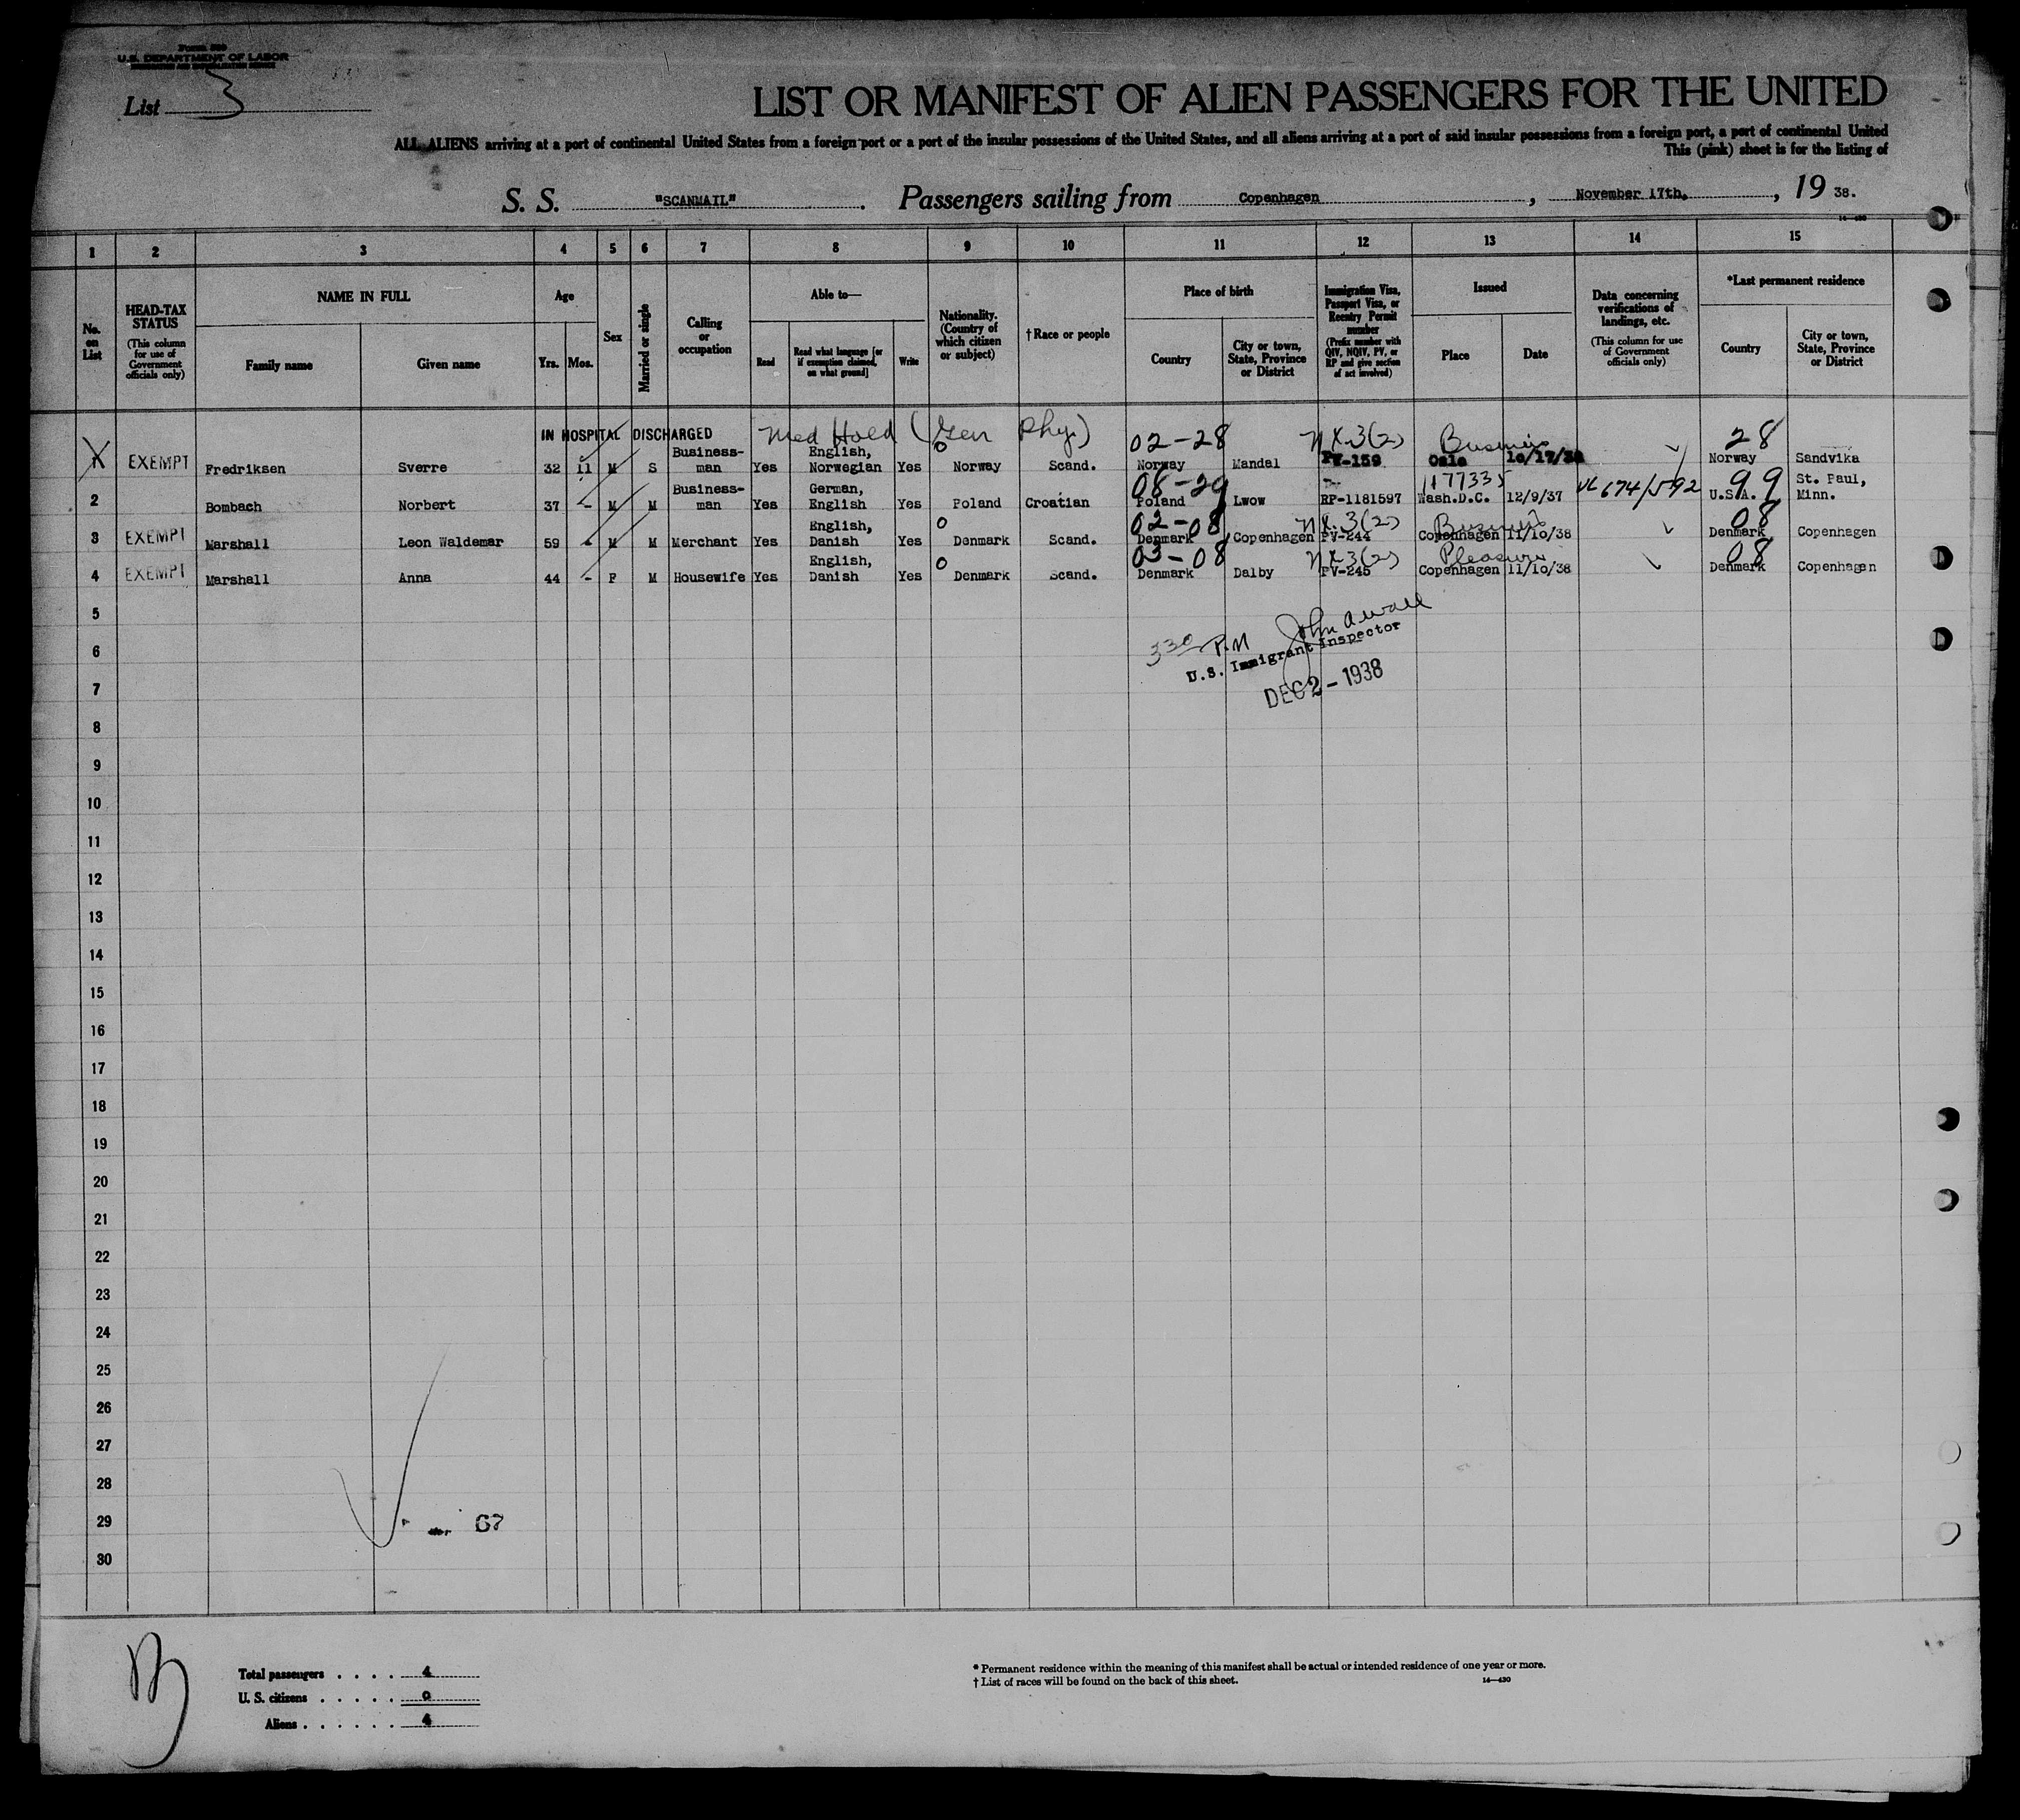 Form 500
U.S. DEPARTMENT OF LABOR
List 3
LIST OR MANIFEST OF ALIEN PASSENGERS FOR THE UNITED
ALL ALIENS arriving at a port of continental United States from a foreign port or a port of the insular possessions of the United States, and all aliens arriving at a port of said insular possessions from a foreign port, a port of continental United
This (pink) sheet is for the listing of
S. S. "SCANMAIL". Passengers sailing from Copenhagen, November 17th, 1938.
1 2 3 4 5 6 7 8 9 10 11 12 13 14 15
No. on List
HEAD-TAX STATUS (This column for use of Government officials only)
NAME IN FULL Family name Given name
Age Yrs. Mos.
Sex
Married or single
Calling or occupation
Able to— Read Read what language [or if exemption claimed, on what ground] Write
Nationality. (Country of which citizen or subject)
†Race or people
Place of birth Country City or town, State, Province or District
Immigration Visa, Passport Visa, or Reentry Permit number (Prefix number with QIV, NQIV, PV, or RP and give section of act involved)
Issued Place Date
Data concerning verifications of landings, etc. (This column for use of Government officials only)
*Last permanent residence Country City or town, State, Province or District
IN HOSPITAL DISCHARGED Med Hold (Gen Phy.) 02-28 NX.3(2) Business 28
1 EXEMPT Fredriksen Sverre 32 11 M S Business-man Yes English, Norwegian Yes 0 Norway Scand. Norway Mandal PV-159 Oslo 10/17/38 Norway Sandvika
08-29 1177335 99
2 Bombach Norbert 37 - M M Business-man Yes German, English Yes Poland Croatian Poland Lwow RP-1181597 Wash.D.C. 12/9/37 VL 674/592 U.S.A. St. Paul, Minn.
02-08 NX.3(2) Business 08
3 EXEMPT Marshall Leon Waldemar 59 - M M Merchant Yes English, Danish Yes 0 Denmark Scand. Denmark Copenhagen PV-244 Copenhagen 11/10/38 Denmark Copenhagen
03-08 NX3(2) Pleasure 08
4 EXEMPT Marshall Anna 44 - F M Housewife Yes English, Danish Yes 0 Denmark Scand. Denmark Dalby PV-245 Copenhagen 11/10/38 Denmark Copenhagen
5
6
3 30 P.M
U.S. Immigrant Inspector
7
DEC 2 - 1938
8
9
10
11
12
13
14
15
16
17
18
19
20
21
22
23
24
25
26
27
28
29
67
30
Total passengers . . . . 4
U. S. citizens . . . . . 0
Aliens . . . . . . 4
* Permanent residence within the meaning of this manifest shall be actual or intended residence of one year or more.
† List of races will be found on the back of this sheet.
14—430